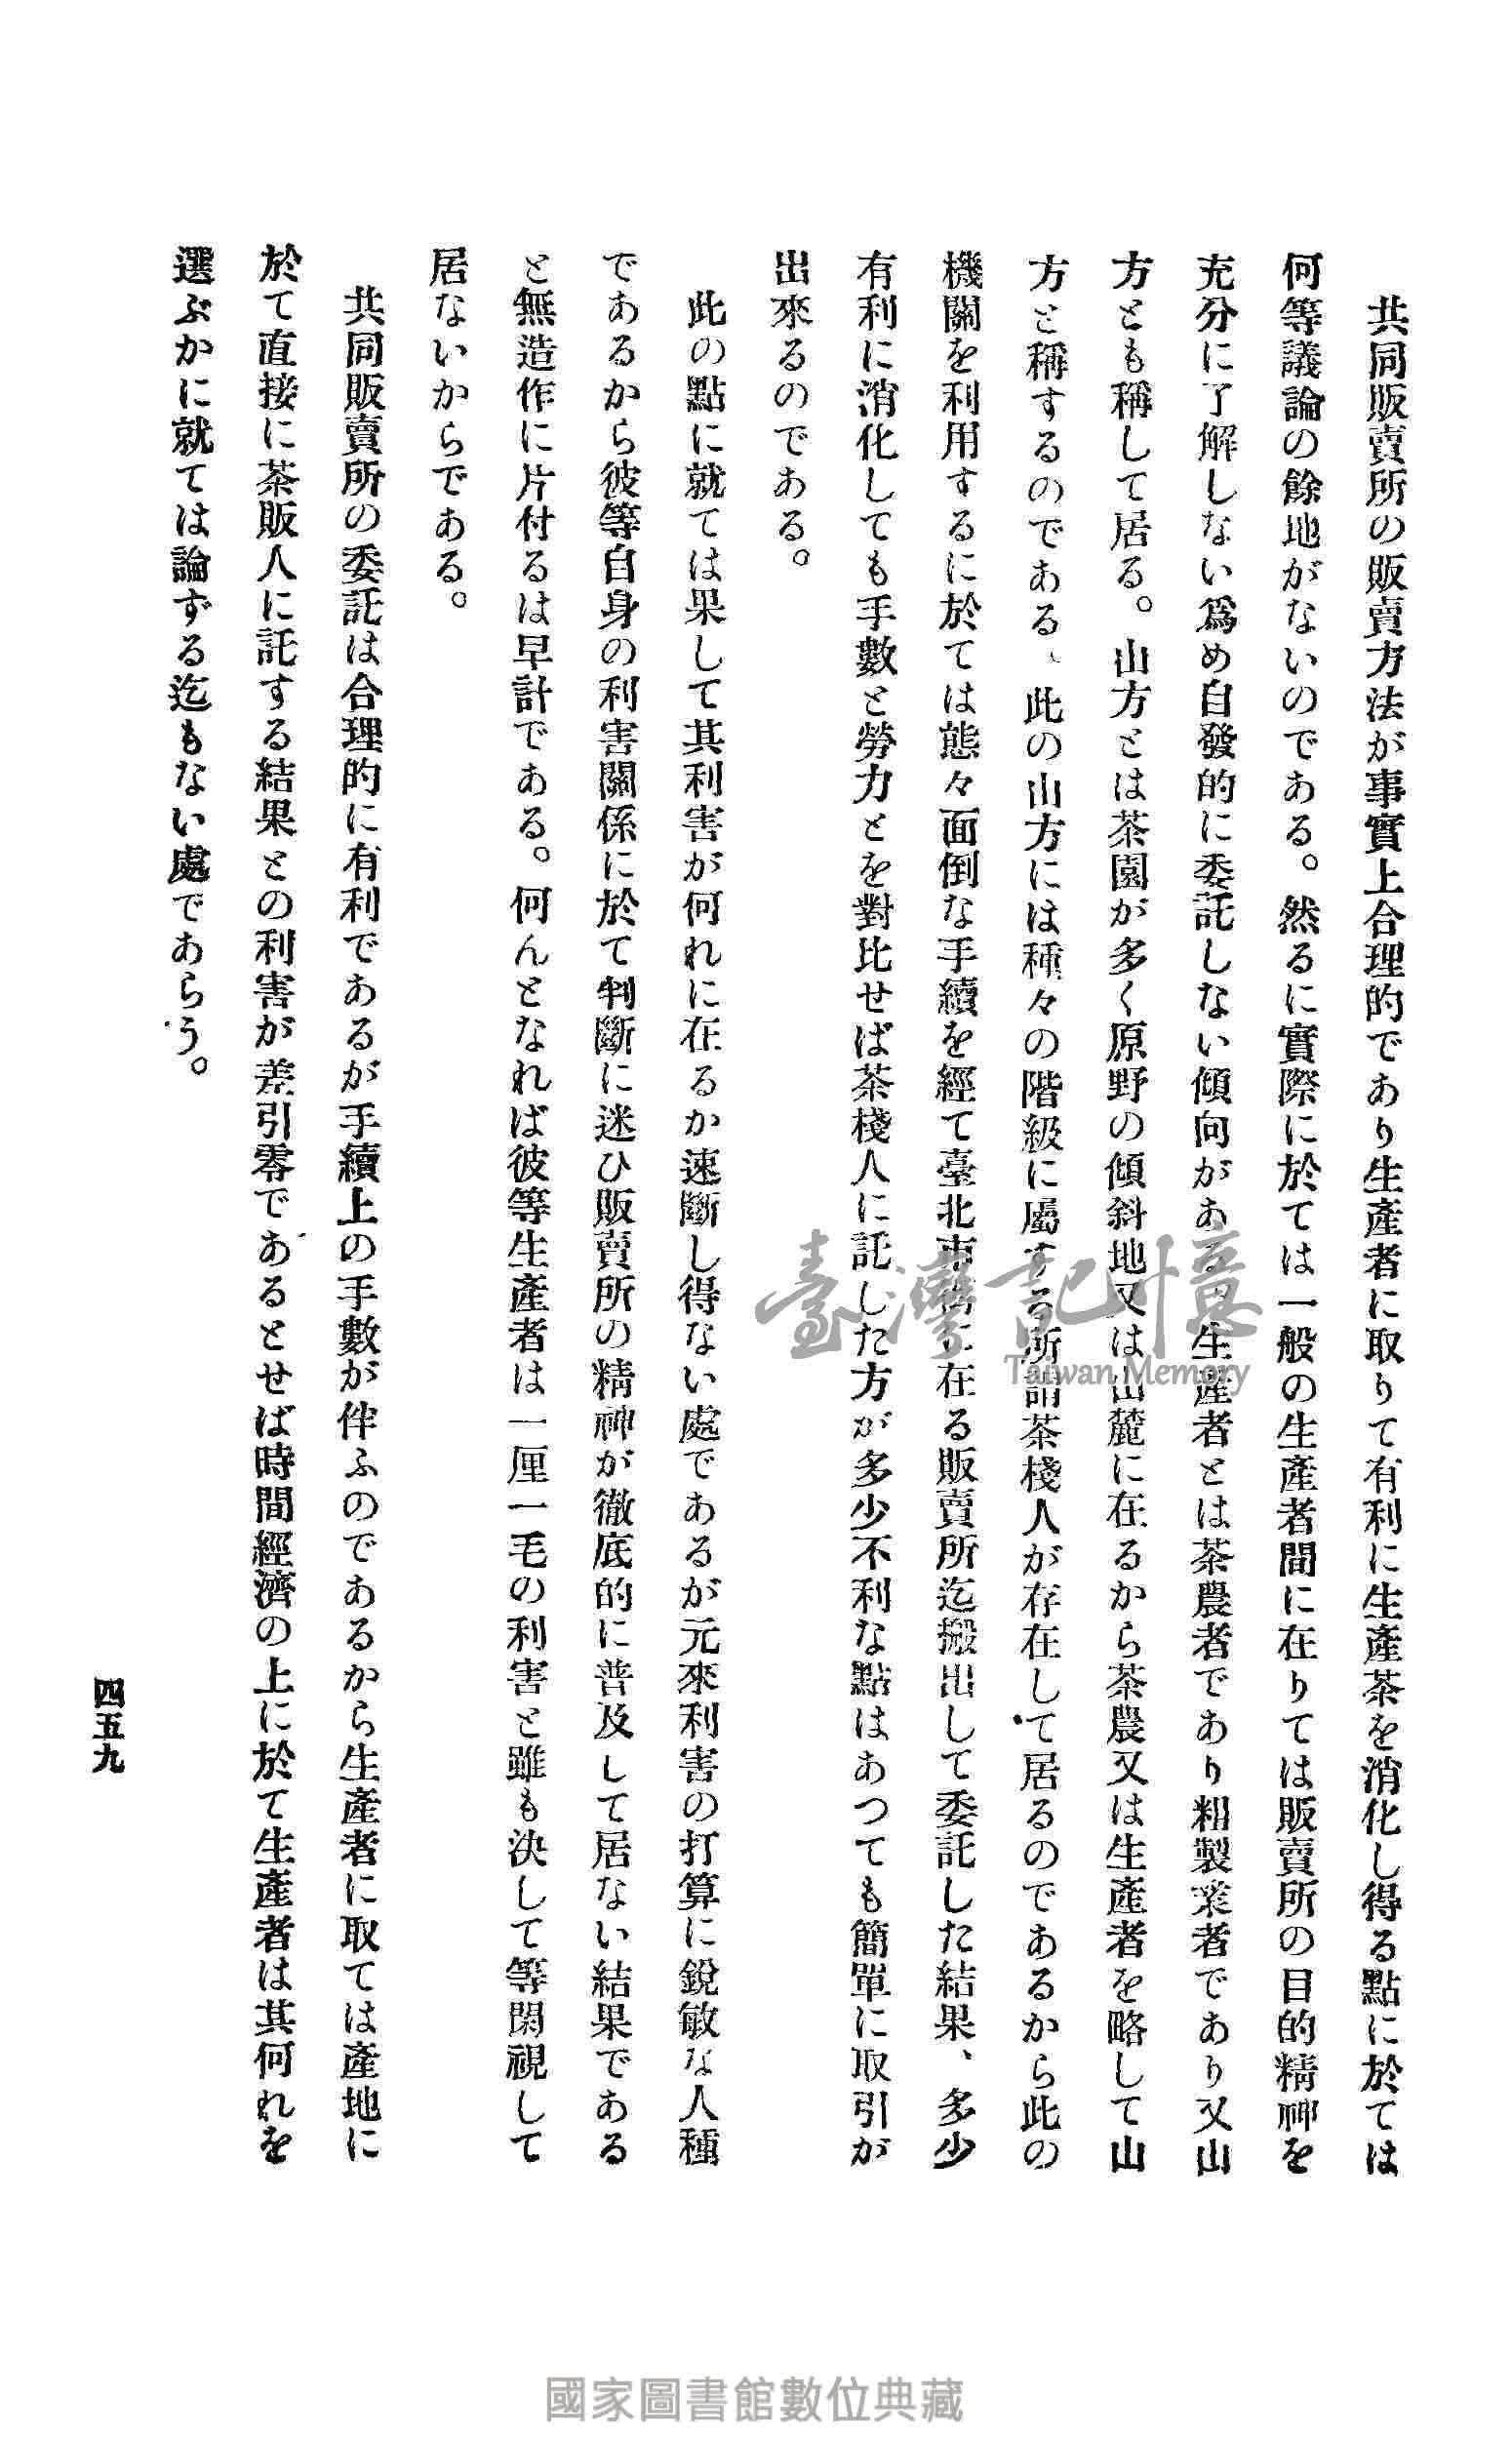 共同販賣所の販賣方法が事實上合理的であり生產者に取りて有利に生產茶を消化し得る點に於ては
何等議論の餘地がないのである。然るに實際に於ては一般の生產者間に在りては販賣所の目的精神を
充分に了解しない爲め自發的に委託しない傾向がある。生產者とは茶農者であり粗製業者であり又山
方とも稱して居る。山方とは茶園が多く原野の傾斜地又は山麓に在るから茶農又は生產者を略して山
方と稱するのである、此の山方には種々の階級に屬する所謂茶棧人が存在して居るのであるから此の
機關を利用するに於ては態々面倒な手續を經て臺北市に在る販賣所迄搬出して委託した結果、多少
有利に消化しても手數と勞力とを對比せば茶棧人に託した方が多少不利な點はあつても簡單に取引が
出來るのである。
此の點に就ては果して其利害が何れに在るか速斷し得ない處であるが元來利害の打算に銳敏な人種
であるから彼等自身の利害關係に於て判斷に迷ひ販賣所の精神が徹底的に普及して居ない結果である
と無造作に片付るは早計である。何んとなれば彼等生產者は一厘一毛の利害と雖も決して等閑視して
居ないからである。
共同販賣所の委託は合理的に有利であるが手續上の手數が伴ふのであるから生產者に取ては產地に
於て直接に茶販人に託する結果との利害が差引零であるとせば時間經濟の上に於て生產者は其何れを
選ぶかに就ては論ずる迄もない處であらう。
四五九
臺灣記憶
Taiwan Memory
國家圖書館數位典藏